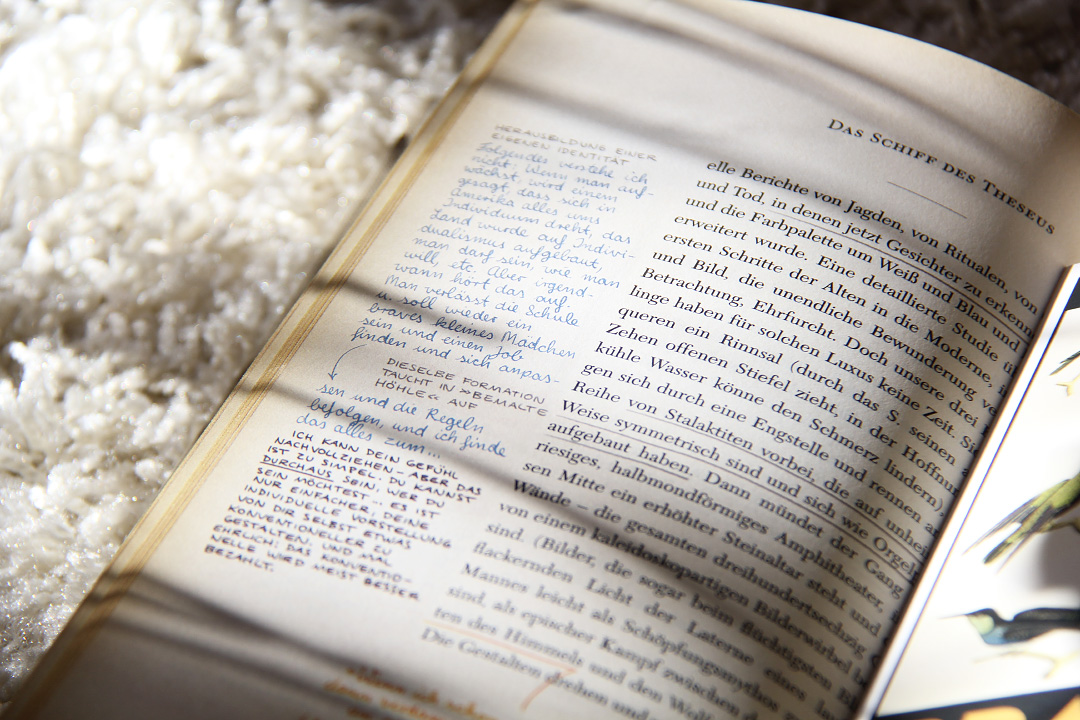 DAS SCHIFF DES THESEUS
HERAUSBILDUNG EINER
EIGENEN IDENTITÄT
Folgendes verstehe ich
nicht: Wenn man auf-
wächst, wird einem
gesagt, dass sich in
Amerika alles ums
Individuum dreht, das
Land wurde auf Indivi-
dualismus aufgebaut,
man darf sein, wie man
will, etc. Aber irgend-
wann hört das auf.
Man verlässt die Schule
u. soll wieder ein
braves kleines Mädchen
sein und einen Job
finden und sich anpas-
DIESELBE FORMATION
TAUCHT IN »BEMALTE
HÖHLE« AUF
sen und die Regeln
befolgen, und ich finde
das alles zum...
ICH KANN DEIN GEFÜHL
NACHVOLLZIEHEN – ABER DAS
IST ZU SIMPEL. DU KANNST
DURCHAUS SEIN, WER DU
SEIN MÖCHTEST... ES IST
NUR EINFACHER, DEINE
INDIVIDUELLE VORSTELLUNG
VON DIR SELBST ETWAS
KONVENTIONELLER ZU
GESTALTEN. UND MAL
EHRLICH: DAS KONVENTIO-
NELLE WIRD MEIST BESSER
BEZAHLT.
elle Berichte von Jagden, von Ritualen, von
und Tod, in denen jetzt Gesichter zu erkenn
und die Farbpalette um Weiß und Blau und
erweitert wurde. Eine detaillierte Studie
ersten Schritte der Alten in die Moderne, i
und Bild, die unendliche Bewunderung ve
Betrachtung, Ehrfurcht. Doch unsere drei
linge haben für solchen Luxus keine Zeit. Si
queren ein Rinnsal (durch das S. seinen a
Zehen offenen Stiefel zieht, in der Hoffnu
kühle Wasser könne den Schmerz lindern)
gen sich durch eine Engstelle und rennen a
Reihe von Stalaktiten vorbei, die auf unhei
Weise symmetrisch sind und sich wie Orgel
aufgebaut haben. Dann mündet der Gang
riesiges, halbmondförmiges Amphitheater,
sen Mitte ein erhöhter Steinaltar steht und
Wände – die gesamten dreihundertsechzig
von einem kaleidoskopartigen Bilderwirbel
sind. (Bilder, die sogar beim flüchtigsten
flackernden Licht der Laterne eines
Mannes leicht als Schöpfungsmythen
sind, als epischer Kampf zwischen
ten des Himmels und den
Die Gestalten drehen und